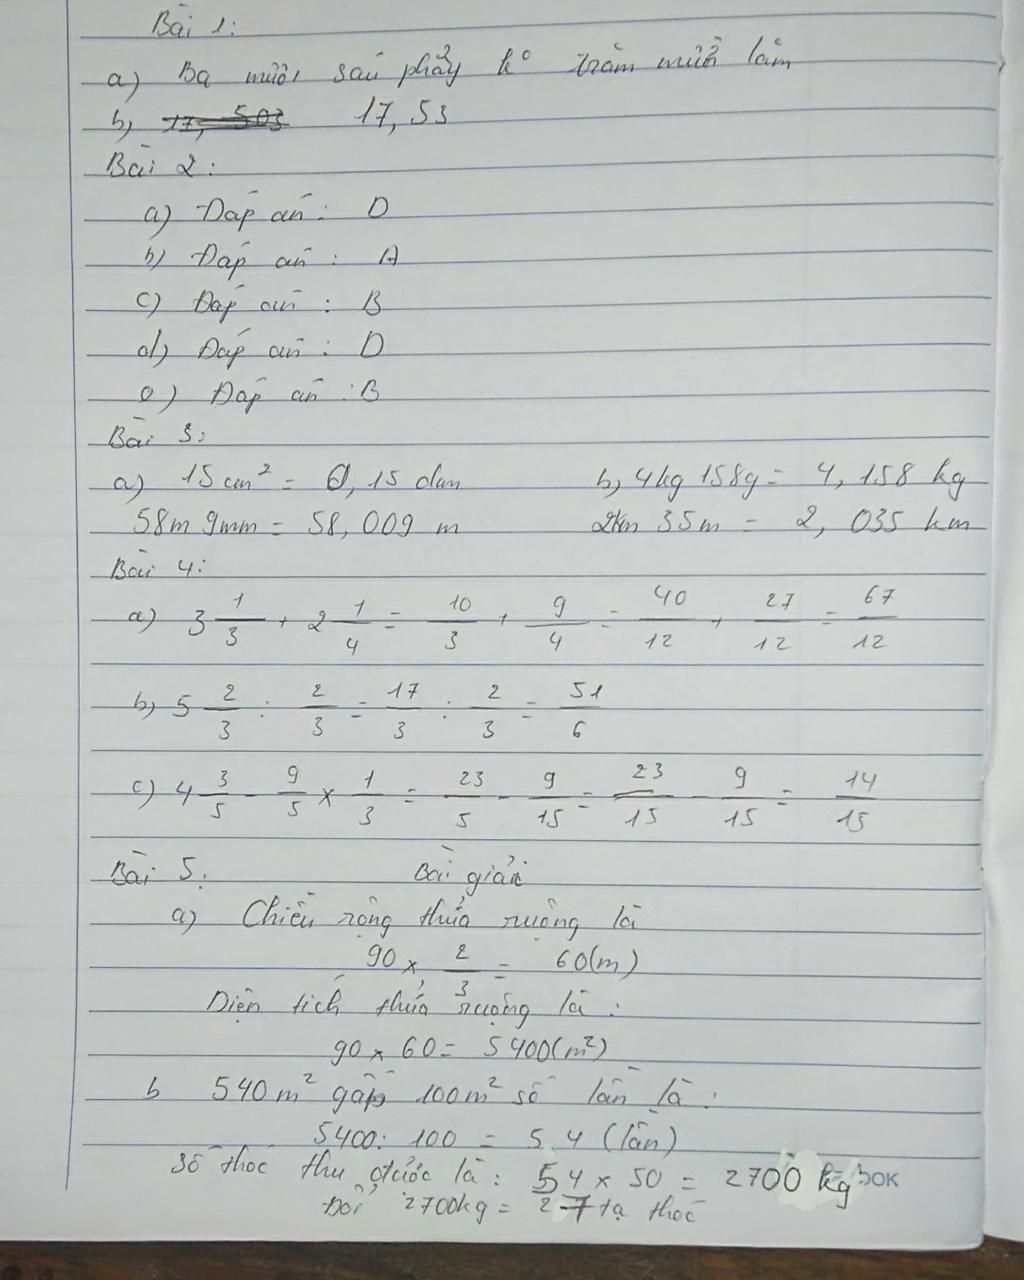 Bài 1:
a) Ba mươi sáu phẩy ko trăm mười lăm
b, 17, 503 17, 53
Bài 2:
a) Đáp án: D
b) Đáp án: A
c) Đáp án: B
d) Đáp án: D
e) Đáp án: B
Bài 3:
a) 15 cm² = 0,15 dm b, 4kg 158g = 4, 158 kg
58m 9mm = 58, 009 m 2km 35m = 2, 035 km
Bài 4:
a) 3 1/3 + 2 1/4 = 10/3 + 9/4 = 40/12 + 27/12 = 67/12
b, 5 2/3 : 2/3 = 17/3 : 2/3 = 51/6
c) 4 3/5 - 9/5 x 1/3 = 23/5 - 9/15 = 23/15 - 9/15 = 14/15
Bài 5: Bài giải
a) Chiều rộng thửa ruộng là
90 x 2/3 = 60(m)
Diện tích thửa ruộng là:
90 x 60 = 5400(m²)
b 540 m² gấp 100m² số lần là:
5400: 100 = 54 (lần)
Số thóc thu được là: 54 x 50 = 2700 kg
Đổi 2700kg = 27 tạ thóc